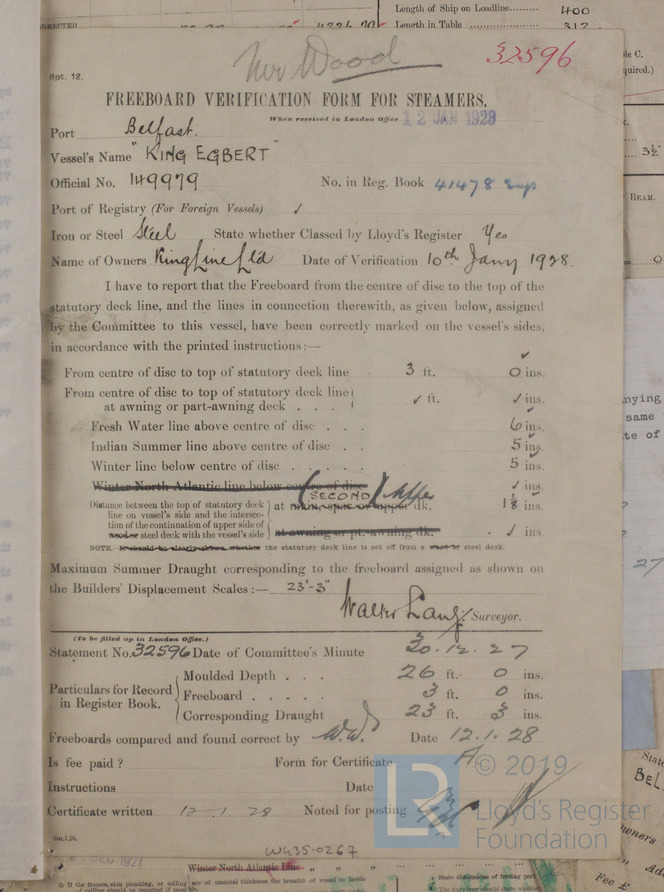 Length of Ship on Loadline......... 400
Length in Table ........... 312
Mr Wood
32596
Rpt. 12.
FREEBOARD VERIFICATION FORM FOR STEAMERS.
When received in London Office 12 JAN 1928
Port Belfast.
Vessel's Name "KING EGBERT"
Official No. 149979 No. in Reg. Book 41478 Sup
Port of Registry (For Foreign Vessels) ✓
Iron or Steel Steel State whether Classed by Lloyd's Register Yes
Name of Owners King Line Ltd Date of Verification 10th Jany 1928.
I have to report that the Freeboard from the centre of disc to the top of the
statutory deck line, and the lines in connection therewith, as given below, assigned
by the Committee to this vessel, have been correctly marked on the vessel's sides,
in accordance with the printed instructions:—
From centre of disc to top of statutory deck line 3 ft. 0 ins.
From centre of disc to top of statutory deck line
at awning or part-awning deck . . . ✓ ft. ✓ ins.
Fresh Water line above centre of disc . . . 6 ins.
Indian Summer line above centre of disc . . 5 ins.
Winter line below centre of disc . . . . . 5 ins.
Winter North Atlantic line below centre of disc ✓ ins.
(SECOND) Upper
Distance between the top of statutory deck
line on vessel's side and the intersec-
tion of the continuation of upper side of
wood or steel deck with the vessel's side
at main, spar or upper dk. 1⅛ ins.
at awning or pt.-awning dk. . ✓ ins.
NOTE. It should be clearly shown whether the statutory deck line is set off from a wood or steel deck.
Maximum Summer Draught corresponding to the freeboard assigned as shown on
the Builders' Displacement Scales:— 23'-3"
Surveyor.
(To be filled up in London Office.)
Statement No. 32596 Date of Committee's Minute 30.12.27
Particulars for Record
in Register Book.
Moulded Depth . . . 26 ft. 0 ins.
Freeboard . . . . . 3 ft. 0 ins.
Corresponding Draught 23 ft. 3 ins.
Freeboards compared and found correct by W.W. Date 12.1.28
Is fee paid? Form for Certificate A
Instructions Date
Certificate written 12.1.28 Noted for posting
© 2019
Lloyd's Register
Foundation
W435-0267
Winter North Atlantic Line